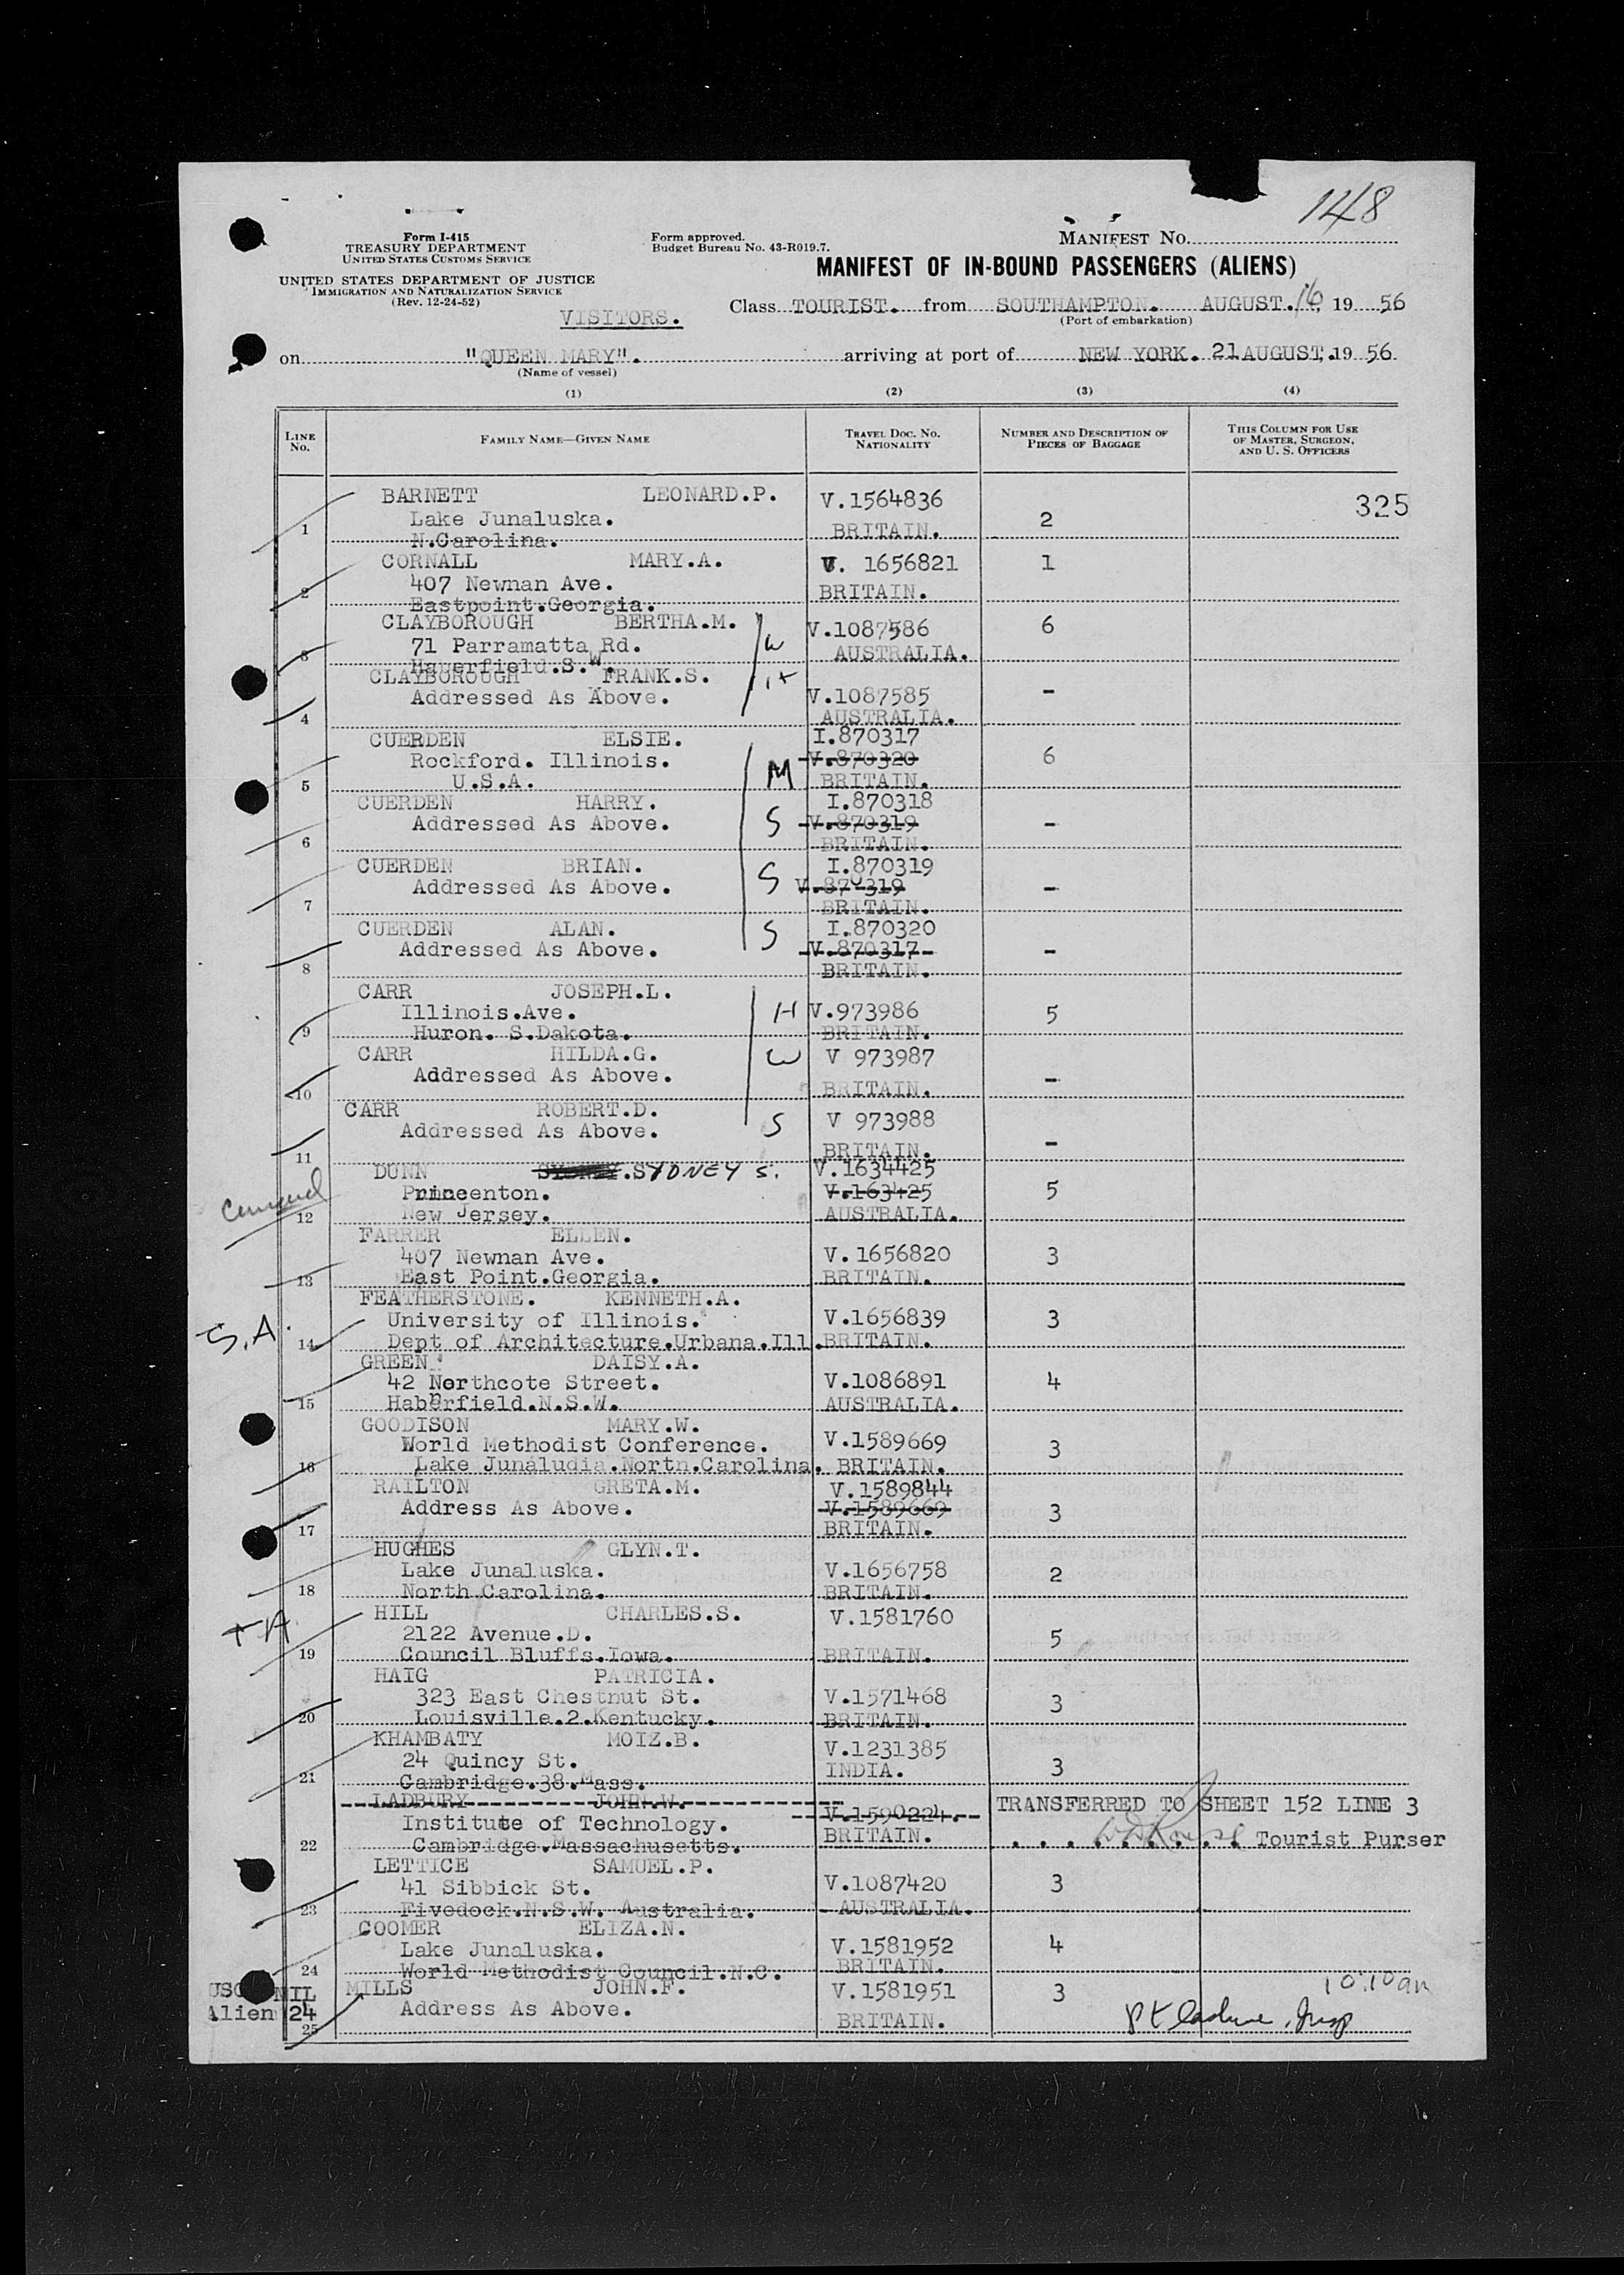 148
Form I-415
TREASURY DEPARTMENT
UNITED STATES CUSTOMS SERVICE
UNITED STATES DEPARTMENT OF JUSTICE
IMMIGRATION AND NATURALIZATION SERVICE
(Rev. 12-24-52)
Form approved.
Budget Bureau No. 43-R019.7.
MANIFEST No.
MANIFEST OF IN-BOUND PASSENGERS (ALIENS)
VISITORS.
Class TOURIST. from SOUTHAMPTON. AUGUST.16, 19 56
(Port of embarkation)
on "QUEEN MARY". arriving at port of NEW YORK. 21 AUGUST, 19 56
(Name of vessel)
(1) (2) (3) (4)
LINE No. FAMILY NAME—GIVEN NAME TRAVEL DOC. No. NATIONALITY NUMBER AND DESCRIPTION OF PIECES OF BAGGAGE THIS COLUMN FOR USE OF MASTER, SURGEON, AND U. S. OFFICERS
BARNETT LEONARD.P. V.1564836 325
Lake Junaluska. 2
1 N.Carolina. BRITAIN.
CORNALL MARY.A. V. 1656821 1
407 Newnan Ave.
2 Eastpoint.Georgia. BRITAIN.
CLAYBOROUGH BERTHA.M. V.1087586 6
71 Parramatta Rd. W
3 Haberfield.S.W. AUSTRALIA.
CLAYBOROUGH FRANK.S. H
Addressed As Above. V.1087585 -
4 AUSTRALIA.
CUERDEN ELSIE. I.870317
Rockford. Illinois. V.870320 6
5 U.S.A. M BRITAIN.
CUERDEN HARRY. I.870318
Addressed As Above. S V.870319 -
6 BRITAIN.
CUERDEN BRIAN. I.870319
Addressed As Above. S V.870319 -
7 BRITAIN.
CUERDEN ALAN. I.870320
Addressed As Above. S V.870317 -
8 BRITAIN.
CARR JOSEPH.L.
Illinois.Ave. H V.973986 5
9 Huron. S.Dakota. BRITAIN.
CARR HILDA.G. W V 973987
Addressed As Above. -
10 BRITAIN.
CARR ROBERT.D.
Addressed As Above. S V 973988 -
11 BRITAIN.
DUNN .SYDNEY S. V.1634425
Princenton. V.163425 5
12 New Jersey. AUSTRALIA.
FARRER ELLEN.
407 Newnan Ave. V.1656820 3
13 East Point.Georgia. BRITAIN.
FEATHERSTONE. KENNETH.A.
University of Illinois. V.1656839 3
S.A. 14 Dept of Architecture.Urbana.Ill. BRITAIN.
GREEN DAISY.A.
42 Northcote Street. V.1086891 4
15 Haberfield.N.S.W. AUSTRALIA.
GOODISON MARY.W.
World Methodist Conference. V.1589669 3
16 Lake Junaludia.North.Carolina. BRITAIN.
RAILTON GRETA.M. V.1589844
Address As Above. V.1589669 3
17 BRITAIN.
HUGHES GLYN.T.
Lake Junaluska. V.1656758 2
18 North.Carolina. BRITAIN.
HILL CHARLES.S. V.1581760
2122 Avenue.D. 5
19 Council Bluffs.Iowa. BRITAIN.
HAIG PATRICIA.
323 East Chestnut St. V.1571468 3
20 Louisville.2.Kentucky. BRITAIN.
KHAMBATY MOIZ.B. V.1231385
24 Quincy St. INDIA. 3
21 Cambridge.38.Mass.
LADBURY JOHN.W. V.1590224. TRANSFERRED TO SHEET 152 LINE 3
Institute of Technology.
22 Cambridge.Massachusetts. BRITAIN. Tourist Purser
LETTICE SAMUEL.P.
41 Sibbick St. V.1087420 3
23 Fivedock.N.S.W. Australia. AUSTRALIA.
COOMER ELIZA.N.
Lake Junaluska. V.1581952 4
24 World Methodist Council.N.C. BRITAIN.
USC NIL MILLS JOHN.F. V.1581951 3 10:10am
Alien 24 Address As Above.
25 BRITAIN.